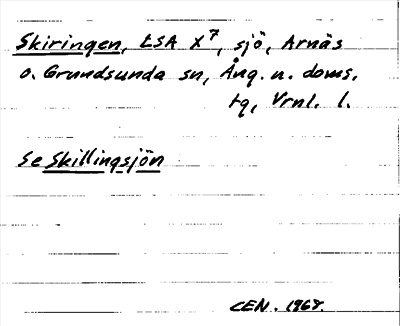 Skiringen, ESA X7, sjö, Arnäs
o. Grundsunda sn, Ång. n. doms.
tg, Vrnl. l.
Se Skillingsjön
CEN. 1968.